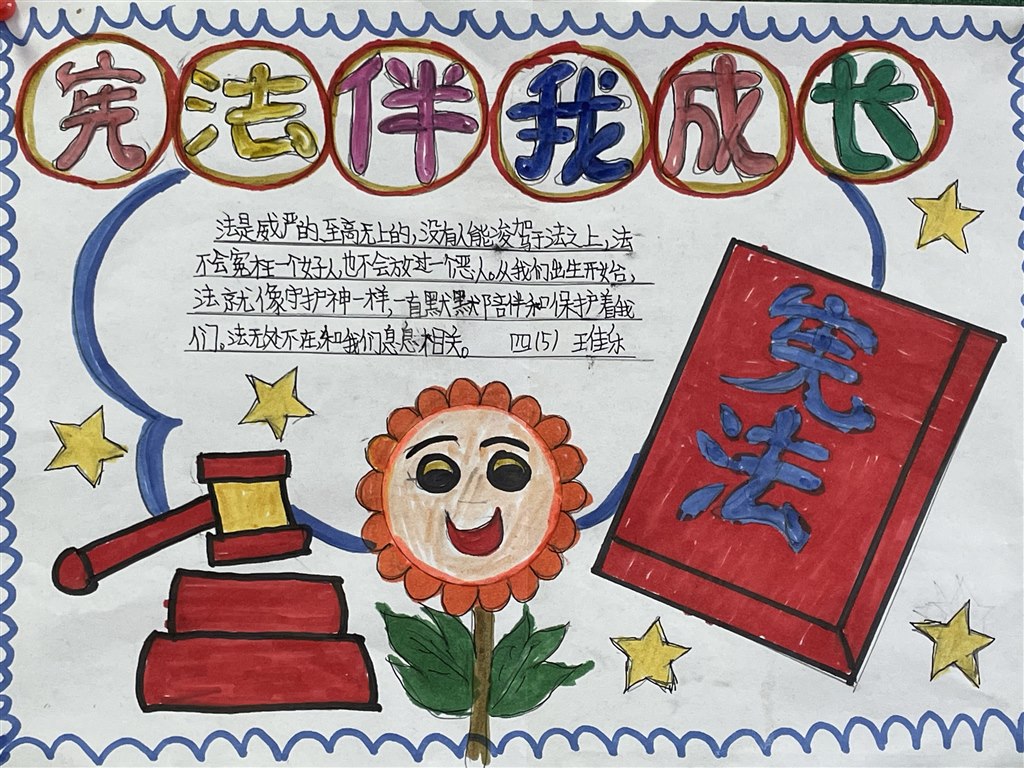 宪法伴我成长
法是威严的至高无上的，没有人能凌驾于法之上，法
不会冤枉一个好人也不会放过一个恶人。从我们出生开始，
法就像守护神一样，一直默默陪伴和保护着我
们。法无处不在，和我们息息相关。 四（5） 王佳乐
宪法